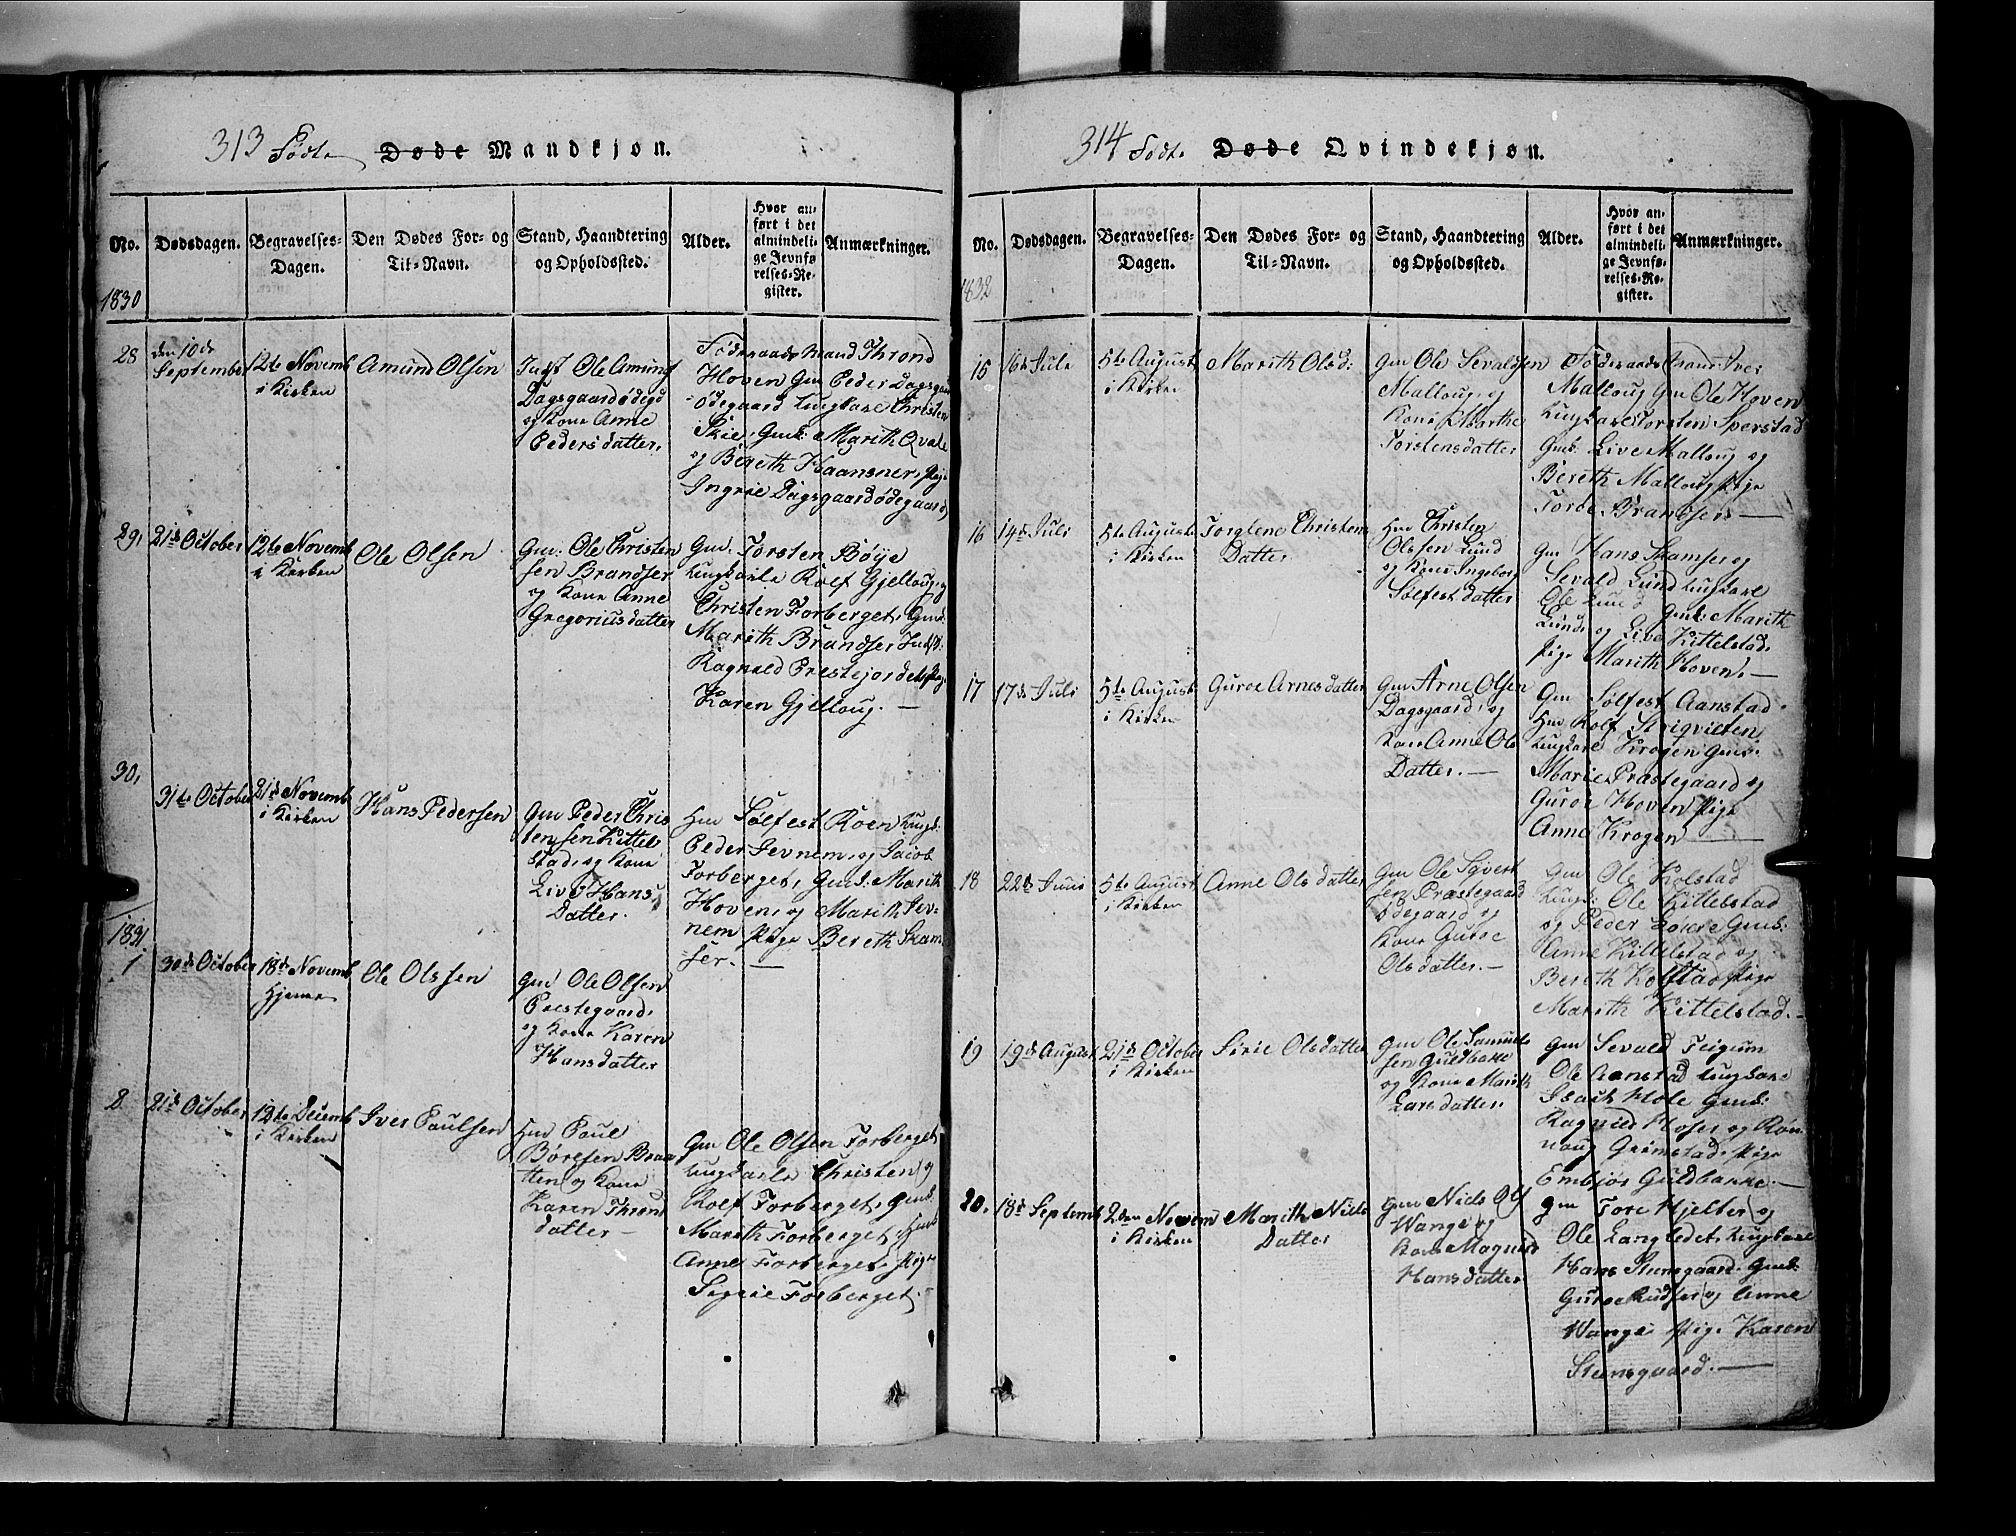 313 Födte Døde Mandkjøn.
No. Dødsdagen. Begravelses-Dagen. Den Dødes For- og Til-Navn. Stand, Haandtering og Opholdssted. Alder. Hvor anført i det almindelige Jevnførelses-Register. Anmærkninger.
1830
28 den 10de September
12te Novemb
i Kirken
Amund Olsen
Ole Amund
Dagsgaardødegd
og Kone Anne
Pedersdatter,
Föderaadsmand Thrond
Hoven Gm Peder Dagsgaard
ödegaard Ungkarle Christen
Skie, Gmk: Marith Qvale
og Bereth Haansner, Pige
Ingrie Dagsgaardødegaard
29, 21de October
12te Novemb
i Kirken
Ole Olsen
Gm: Ole Christen
sen Brandser
og Kone Anne
Gregoriusdatter
Gm Torsten Böye
Ungkarle Rolf Gjelloug, og
Christen Forberget, Gmk:
Marith Brandser
Ragnild Prestejordet, Pige
Karen Gjelloug. —
30,
31te October
21de Novemb
i Kirken
Hans Pedersen
Gm Peder Chris
tensen Kittel
stad, og Kone
Live Hans
Datter.
Hm Sølfest Roen Ungk:
Peder Jevnem, og Jacob
Forberget, Gmk: Marith
Hoven, og Marith Jev-
nem Pige Bereth Skam
ser. —
1831.
1 30de October
18de Novemb
Hjemme
Ole Olsen
Gm Ole Olsen
Prestegaard,
og Kone Karen
Hansdatter
2 21de October
12te Decemb
i Kirken
Iver Paulsen
Hm Paul
Boresen Braa
tten og Kone
Karen Thrond
datter —
Gm Ole Olsen Forberget
Ungkarle Christen og
Rolf Forberget, Gmk:
Marith Forberget,
Anne Forberget, Pige
Sigrie Forberget.
314 Födte Døde Qvindekjøn.
No. Dødsdagen. Begravelses-Dagen. Den Dødes For- og Til-Navn. Stand, Haandtering og Opholdssted. Alder. Hvor anført i det almindelige Jevnførelses-Register. Anmærkninger.
1832
15 16de Juli
5te August
i Kirken
Marith Olsd:
Gm Ole Sevaldsen
Malloug, og
Kone Marthe
Torstensdatter
Föderaadsmand Iver
Malloug Gm Ole Hoven
Ungkarl Torsten Sperstad
Gmk: Live Malloug og
Bereth Malloug Pige
Torbe Brandser —
16 14de Juli
5te August
i Kirken
Torglene Christens
Datter
Hm Christen
Olssen Lund
og Kone Ingeborg
Sölfestdatter
Gm Hans Skamser og
Sevald Lund Ungkarl
Ole Lund Gmk: Marith
Lund, og Live Kittelstad,
Pige Marith Hoven. —
17 17de Juli
5te August
i Kirken
Guroe Arnesdatter
Gm Arne Olsen
Dagsgaard, og
Kone Anne Ols
Datter. —
Gm Sölfest Aanstad
Hm Rolf
Ungkarl Krogen Gmk:
Marie Prastegaard og
Guroe Hoven Pige
Anne Krogen —
18 22de Juni
5te August
i Kirken
Anne Olsdatter
Gm Ole Syvert
sen Prastegaard
ödegaard og
Kone Guroe
Olsdatter. —
Gm Ole Kolstad
Ungk: Ole Kittelstad
og Peder Loiere Gmk:
Anne Kittelstad og
Bereth Kolstad Pige
Marith Kittelstad. —
19 19de August
21de October
i Kirken
Sirie Olsdatter
Gm Ole Samuels
sen Guldbakke
og Kone Marith
Larsdatter
Gm Sevald Feigum
Ole Aanstad Ungkarl
Isach Mole Gmk:
Ragnild Moser og Rön-
naug Grimstad, Pige
Embjör Guldbakke. —
20. 18de Septemb
2den Novem
i Kirken
Marith Niels
Datter
Gm Niels Ols
Wange og
Kone Magnild
Hansdatter
Gm Tore Hjelter og
Ole Langledet, Ungkarl
Hans Steensgaard. Gmk:
Guroe Rudser og Anne
Wange Pige Karen
Steensgaard. —